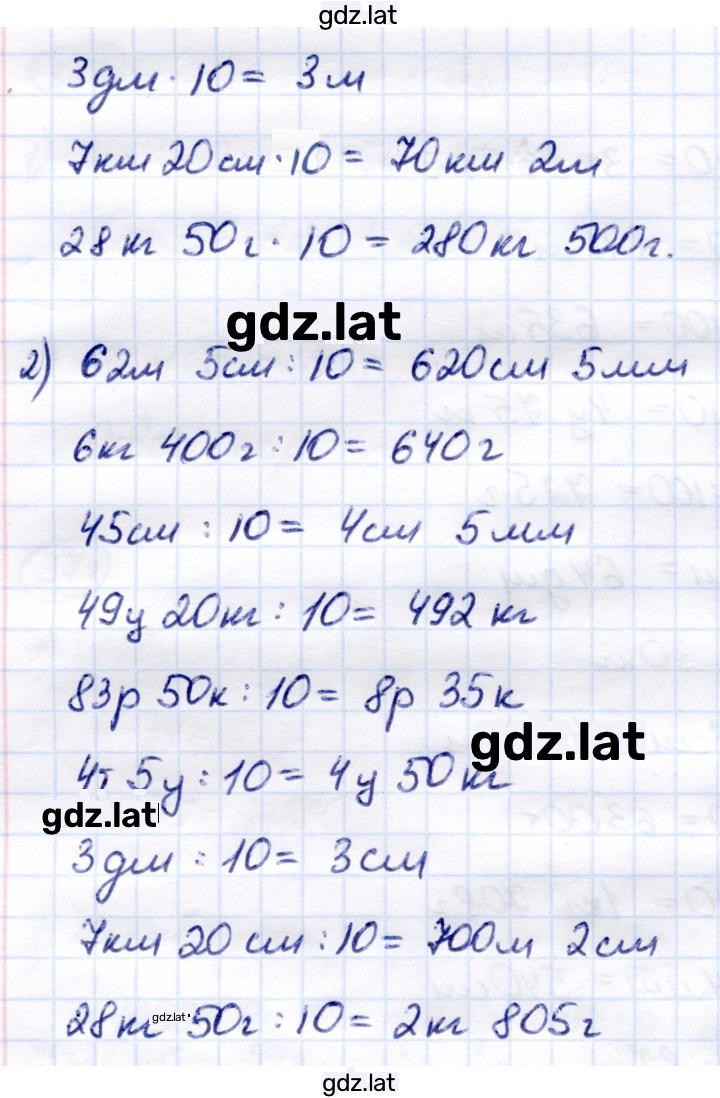 gdz.lat
3дм · 10 = 3м
7км 20см · 10 = 70км 2м
28кг 50г · 10 = 280кг 500г.
gdz.lat
2) 62м 5см : 10 = 620см 5мм
6кг 400г : 10 = 640г
45см : 10 = 4см 5мм
49ц 20кг : 10 = 492 кг
83р 50к : 10 = 8р 35к
gdz.lat
4т 5ц : 10 = 4ц 50кг
gdz.lat
3дм : 10 = 3см
7км 20 см : 10 = 700м 2см
28кг gdz.lat 50г : 10 = 2кг 805г
gdz.lat